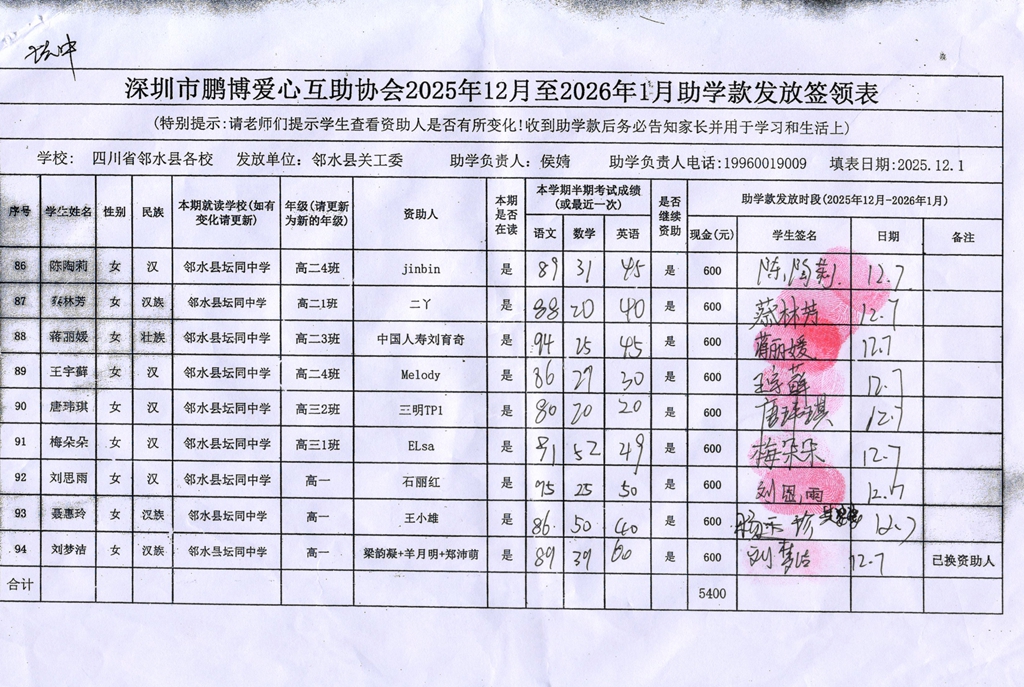 坛冲
深圳市鹏博爱心互助协会2025年12月至2026年1月助学款发放签领表
(特别提示:请老师们提示学生查看资助人是否有所变化!收到助学款后务必告知家长并用于学习和生活上)
学校: 四川省邻水县各校 发放单位:邻水县关工委 助学负责人:侯婧 助学负责人电话:19960019009 填表日期:2025.12.1
序号 学生姓名 性别 民族 本期就读学校(如有变化请更新) 年级(请更新为新的年级) 资助人 本期是否在读 本学期半期考试成绩(或最近一次) 是否继续资助 助学款发放时段(2025年12月-2026年1月)
语文 数学 英语 现金(元) 学生签名 日期 备注
86 陈陶莉 女 汉 邻水县坛同中学 高二4班 jinbin 是 89 31 45 是 600 陈陶莉 12.7
87 蔡林芳 女 汉族 邻水县坛同中学 高二1班 二丫 是 88 20 40 是 600 蔡林芳 12.7
88 蒋丽媛 女 壮族 邻水县坛同中学 高二3班 中国人寿刘育奇 是 94 25 45 是 600 蒋丽媛 12.7
89 王宇薛 女 汉 邻水县坛同中学 高二4班 Melody 是 86 27 30 是 600 王宇薛 12.7
90 唐玮琪 女 汉 邻水县坛同中学 高三2班 三明TP1 是 80 20 20 是 600 唐玮琪 12.7
91 梅朵朵 女 汉 邻水县坛同中学 高三1班 ELsa 是 81 52 49 是 600 梅朵朵 12.7
92 刘思雨 女 汉 邻水县坛同中学 高一 石丽红 是 95 25 50 是 600 刘思雨 12.7
93 聂惠玲 女 汉族 邻水县坛同中学 高一 王小雄 是 86 50 40 是 600 12.7
94 刘梦洁 女 汉族 邻水县坛同中学 高一 梁韵凝+羊月明+郑沛萌 是 89 39 60 是 600 刘梦洁 12.7 已换资助人
合计 5400